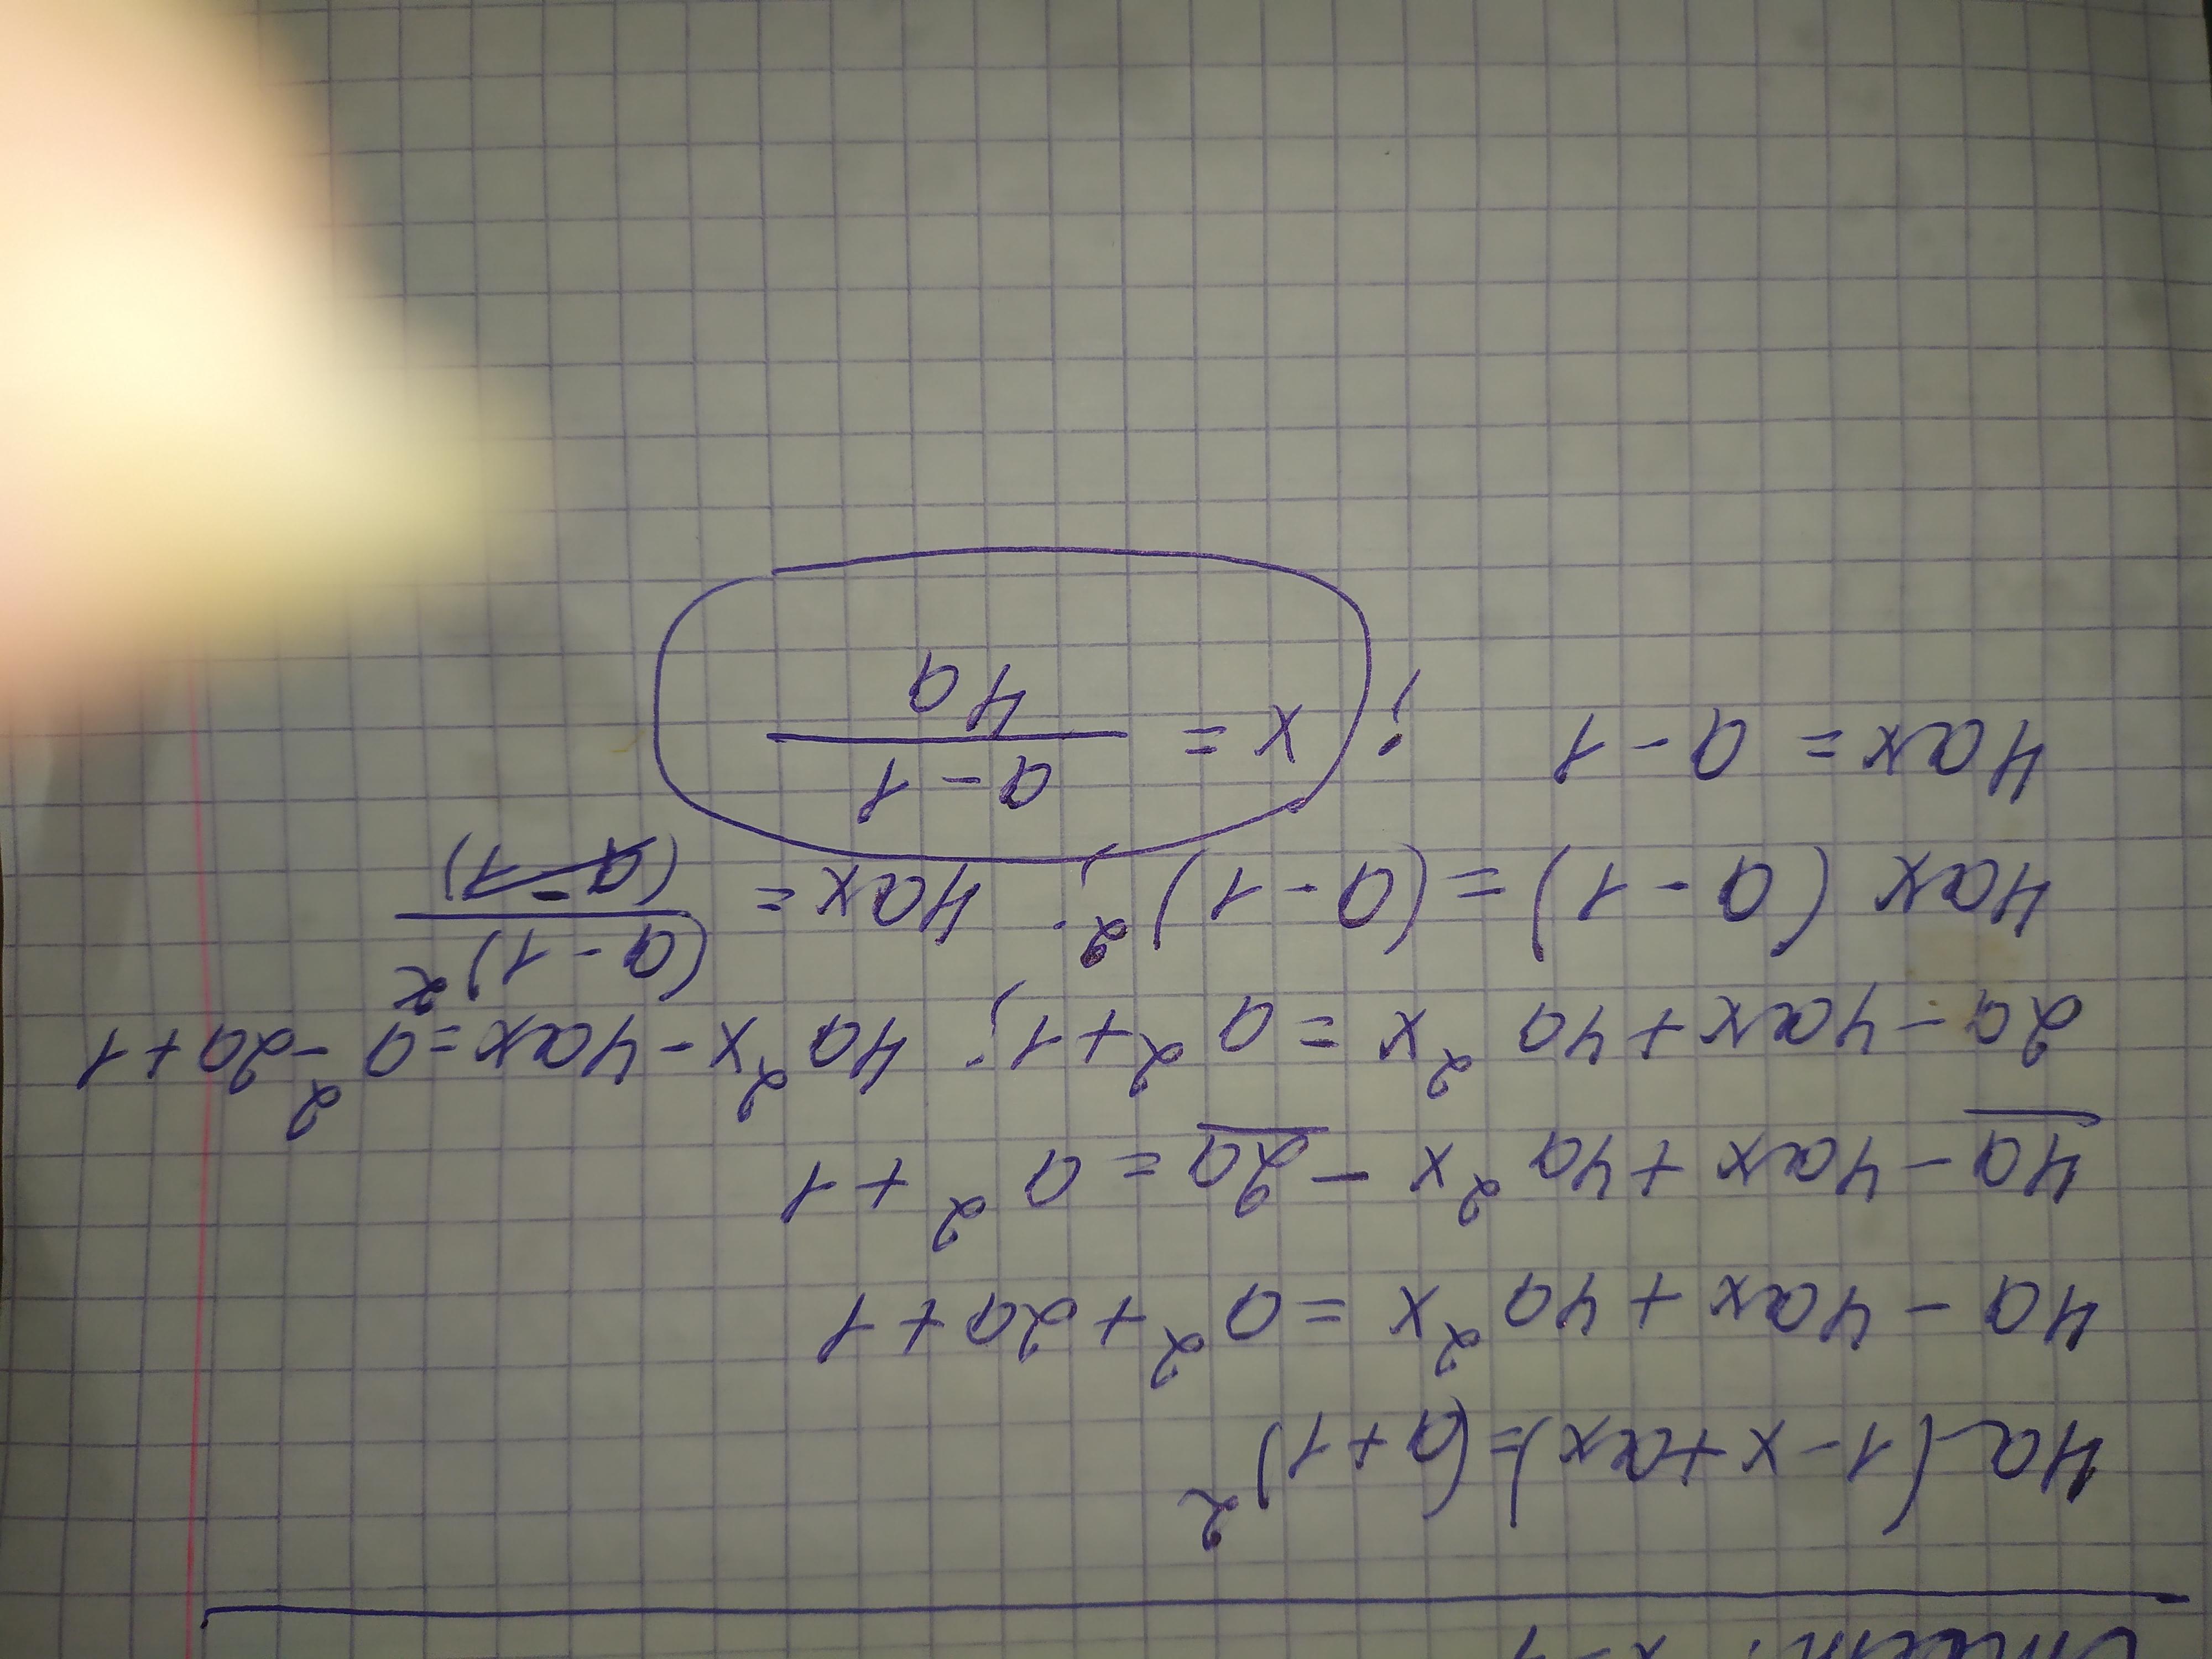 Ответ: x=1
4a(1-x+ax)=(a+1)²
4a-4ax+4a²x=a²+2a+1
4a-4ax+4a²x-2a=a²+1
2a-4ax+4a²x=a²+1; 4a²x-4ax=a²-2a+1
4ax(a-1)=(a-1)²; 4ax=(a-1)²/(a-1)
4ax=a-1; x=(a-1)/4a